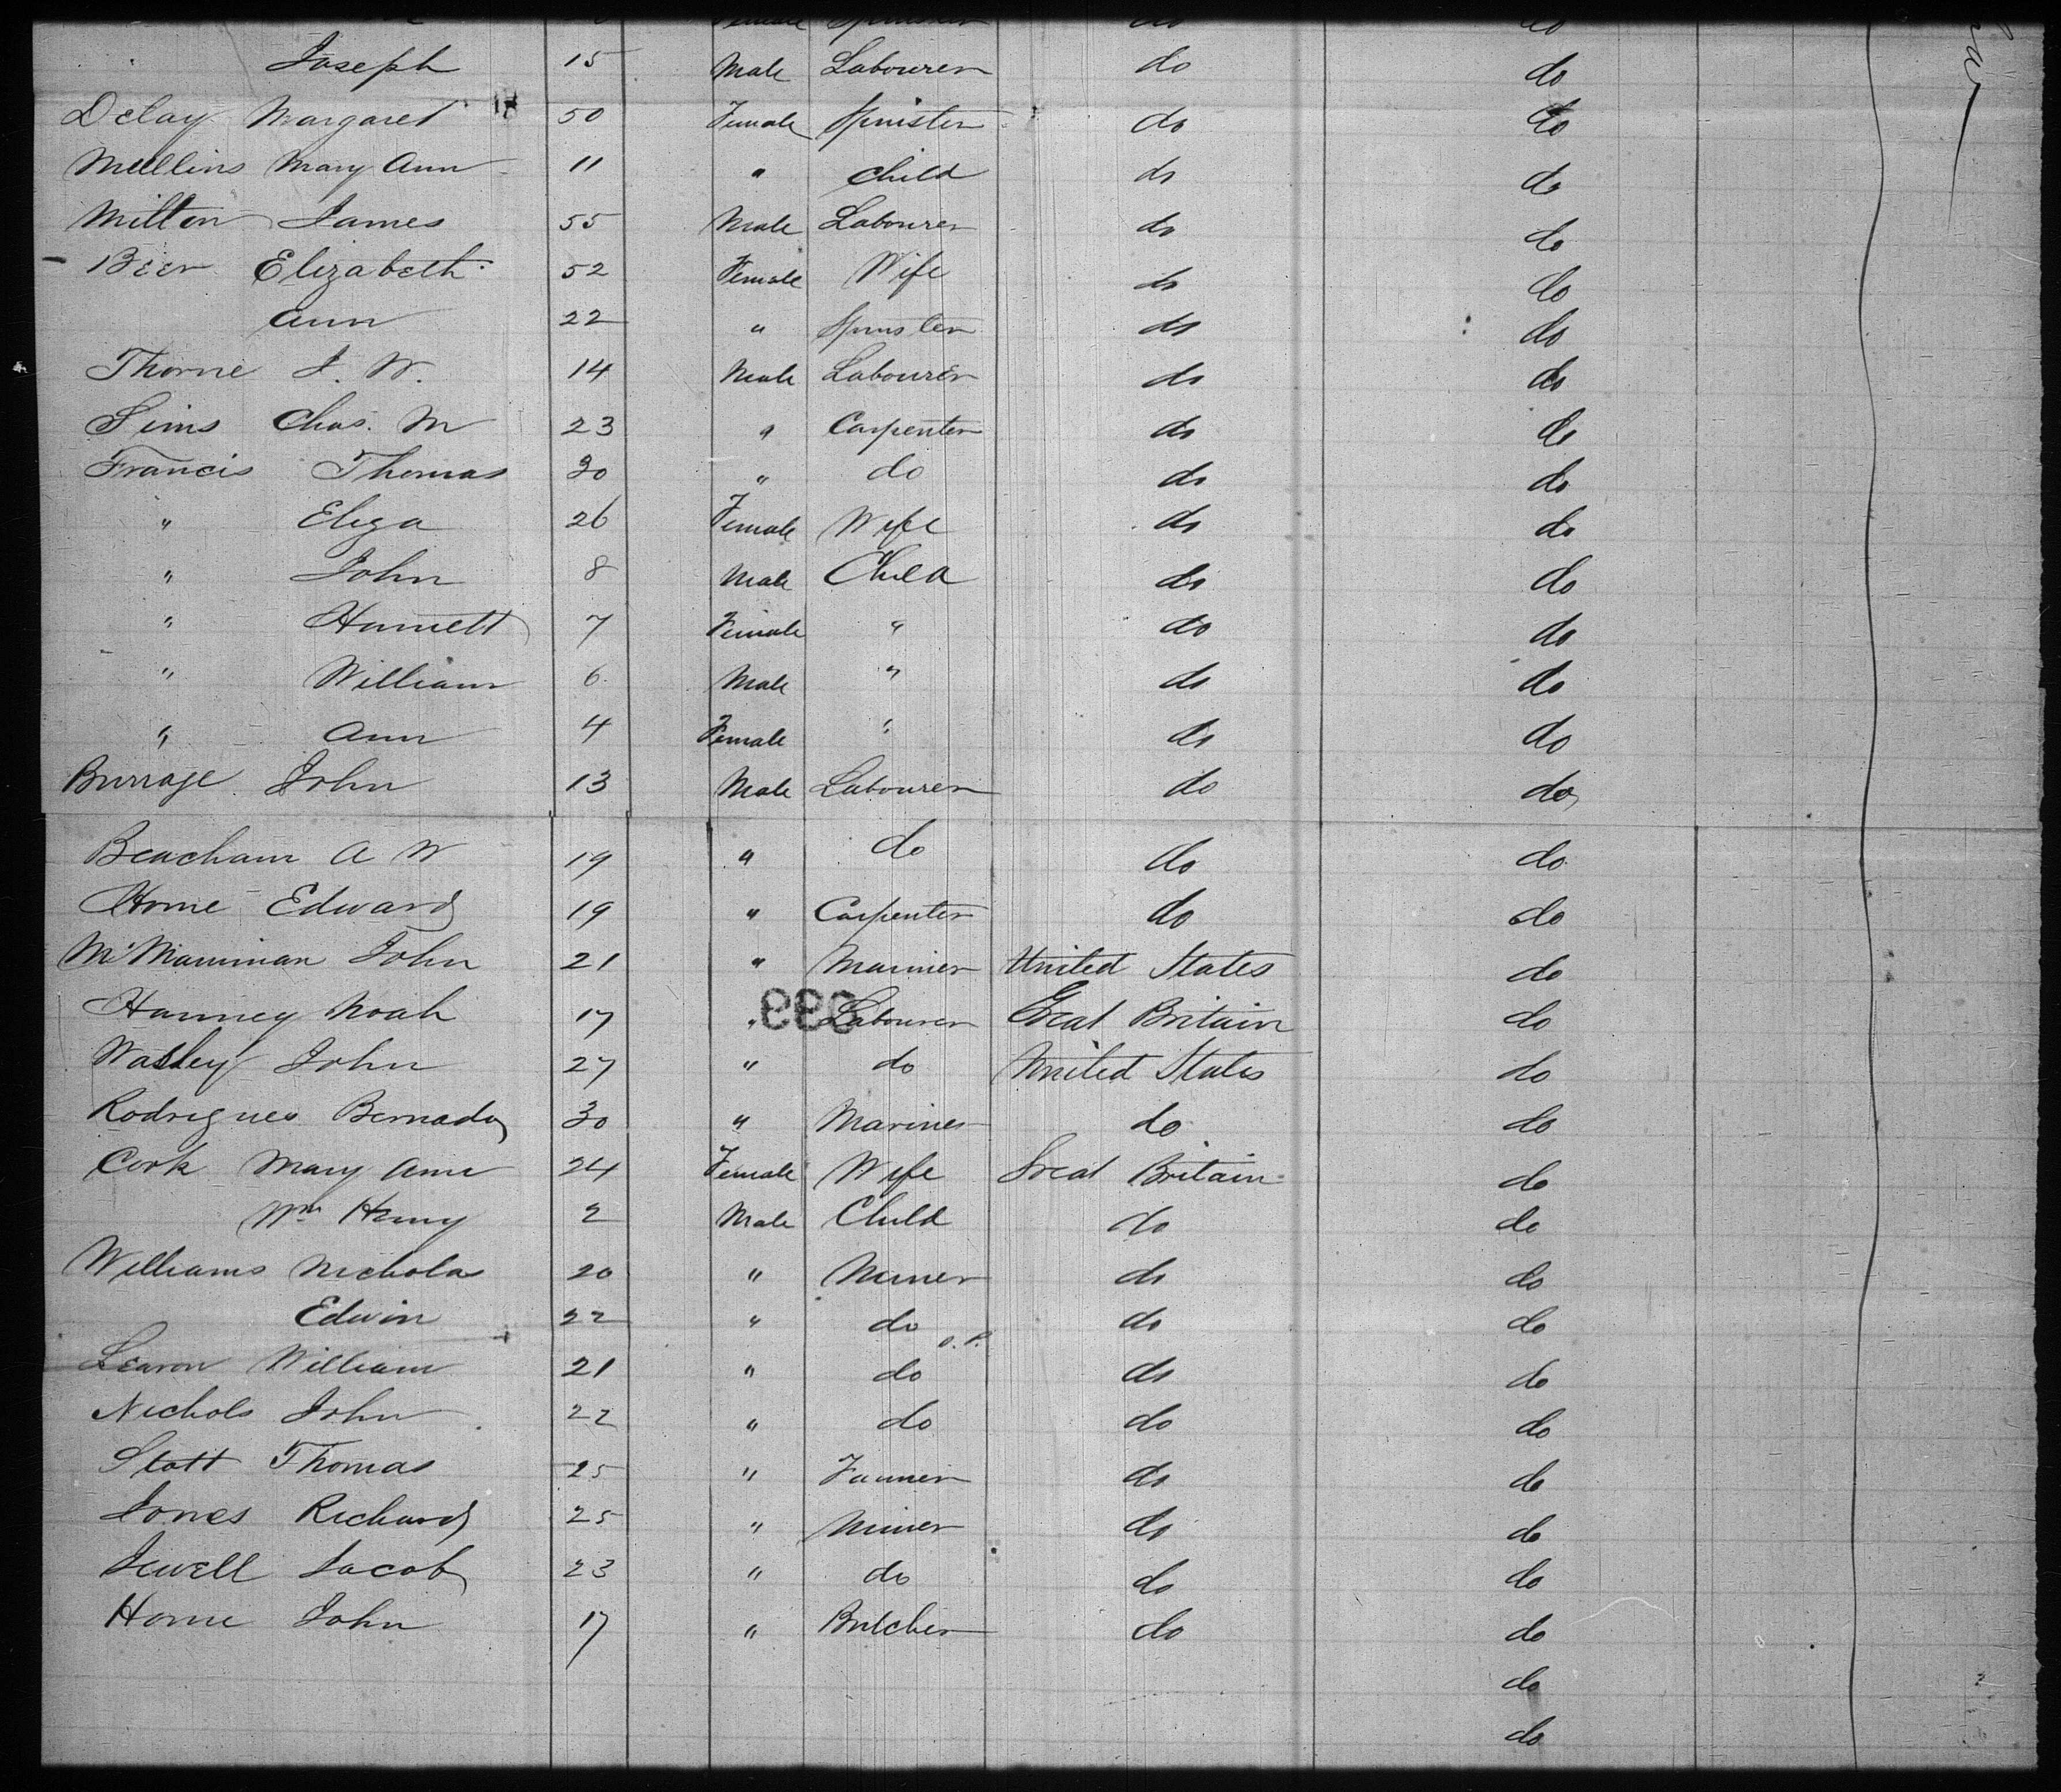 Female Spinster do do
Joseph 15 Male Labourer do do
Delay Margaret 50 Female Spinster do do
Mullins Mary Ann 11 " Child do do
Milton James 55 Male Labourer do do
Beer Elizabeth 52 Female Wife do do
Ann 22 " Spinster do do
Thorne J. W. 14 Male Labourer do do
Sims Chas. M 23 " Carpenter do do
Francis Thomas 30 " do do do
" Eliza 26 Female Wife do do
" John 8 Male Child do do
" Harriett 7 Female " do do
" William 6 Male " do do
" Ann 4 Female " do do
Burrage John 13 Male Labourer do do
Beacham A W 19 " do do do
Horne Edward 19 " Carpenter do do
John 21 " Mariner United States do
Hanney Noah 17 " Labourer Great Britain do
Wasley John 27 " do United States do
Rodrigues 30 " Mariner do do
Cock Mary Ann 24 Female Wife Great Britain do
Wm Henry 2 Male Child do do
Williams Nicholas 20 " Miner do do
Edwin 22 " do do do
William 21 " do do do
Nichols John 22 " do do do
Stott Thomas 25 " Farmer do do
Jones Richard 25 " Miner do do
Jewell Jacob 23 " do do do
Horne John 17 " Butcher do do
do
do